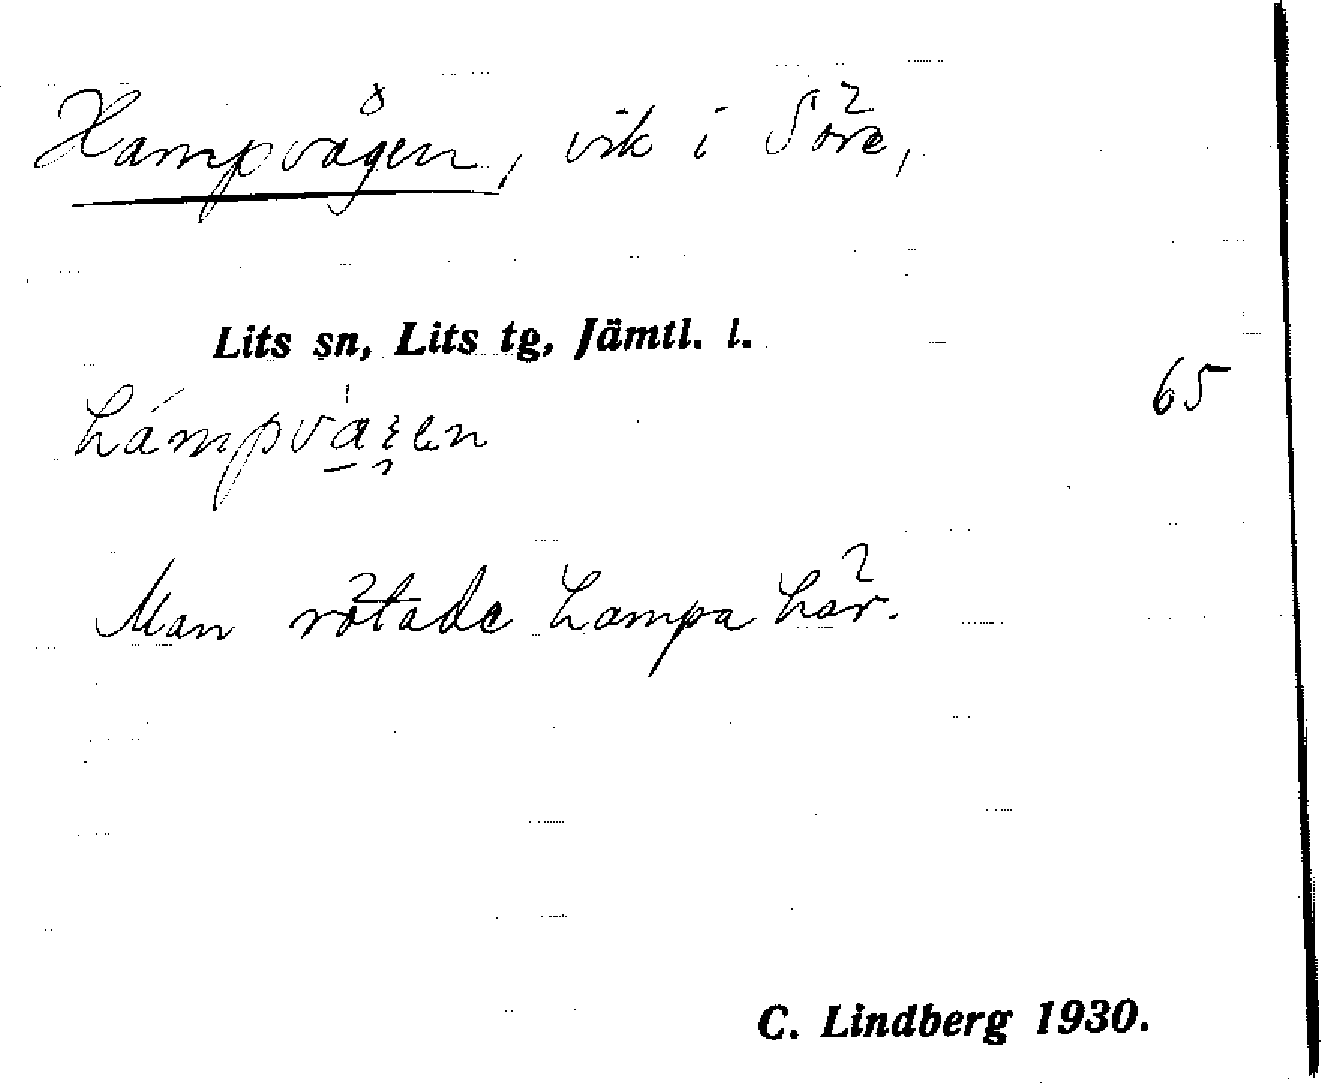 Hampvågen, vik i Söre,
Lits sn, Lits tg, Jämtl. l.
65
Man rötade hampa här.
C. Lindberg 1930.